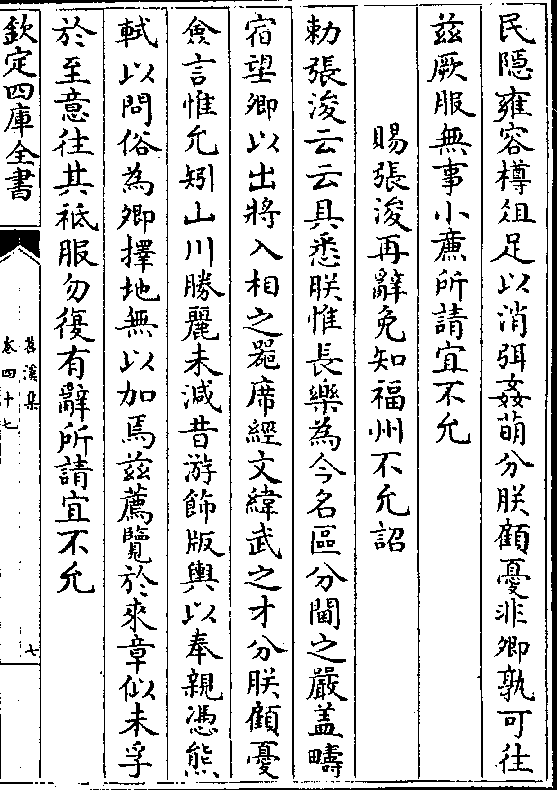 民隱雍容樽俎足以消弭姦萌分朕顧憂非卿孰可往
茲厥服無事小亷所請宜不允
賜張浚再辭免知福州不允詔
勅張浚云云具悉朕惟長樂為今名區分閫之嚴蓋疇
宿望卿以出將入相之噐席經文緯武之才分朕顧憂
僉言惟允矧山川勝麗未減昔游飾版輿以奉親憑熊
軾以問俗為卿擇地無以加焉茲薦覽於來章似未孚
於至意往其祗服勿復有辭所請宜不允
欽定四庫全書
苕溪集
卷四十七
七